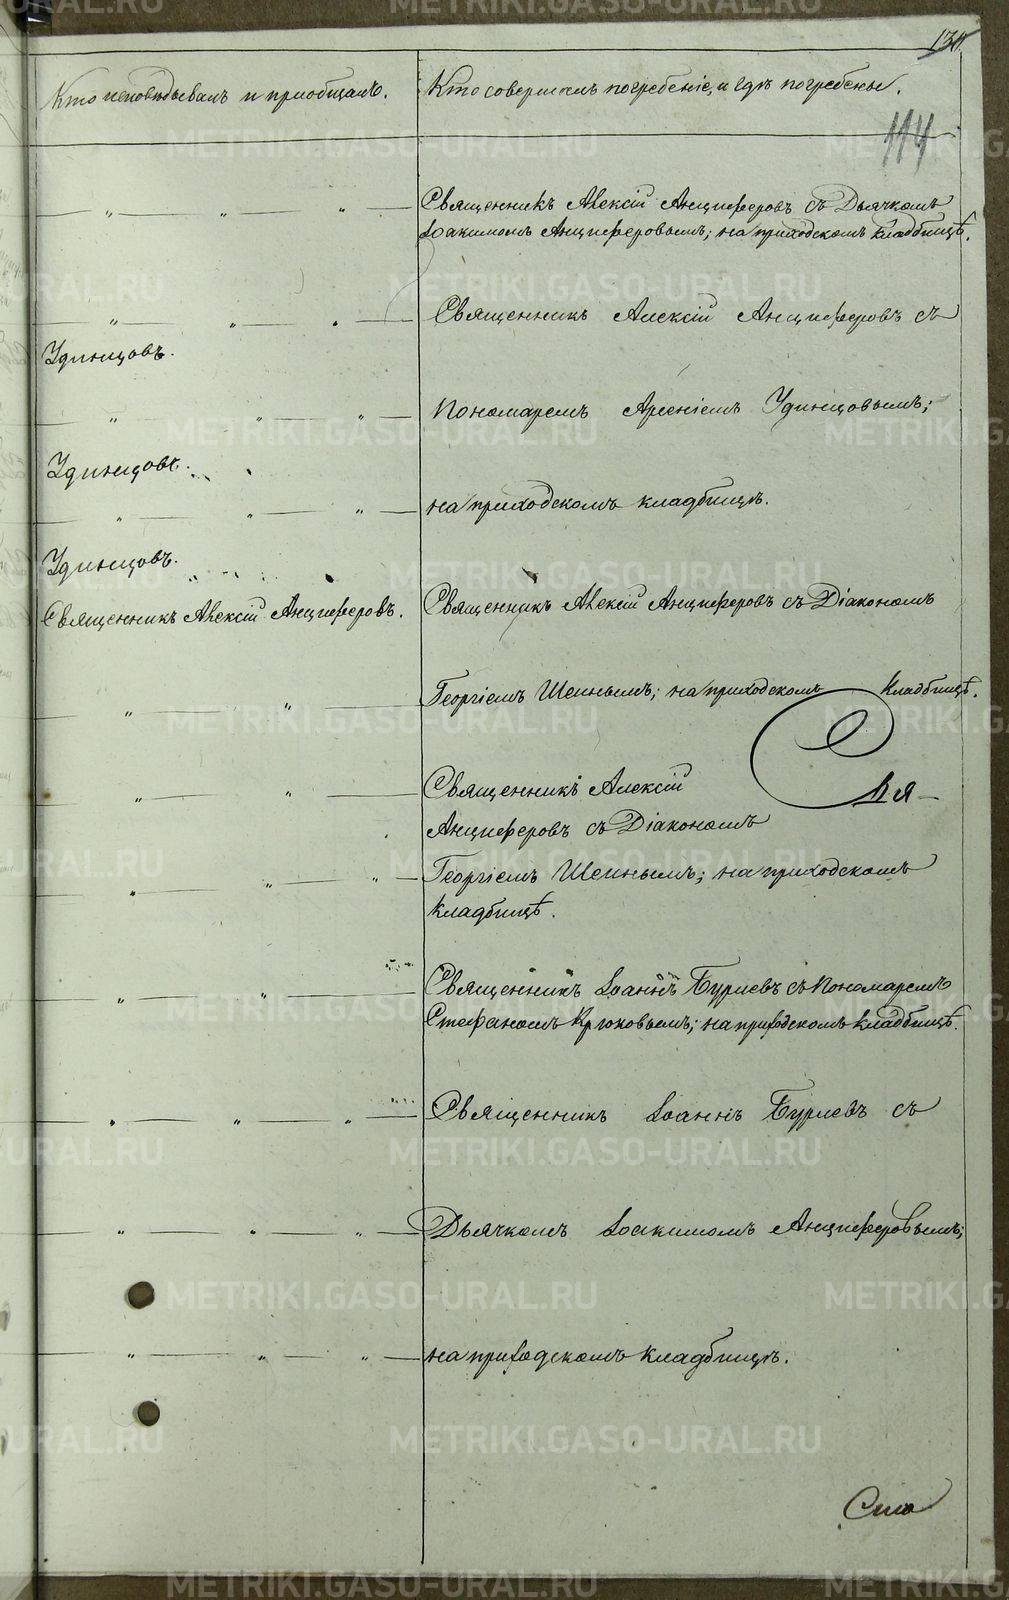 130.
Кто исповѣдывалъ и приобщалъ.
Кто совершалъ погребеніе, и гдѣ погребены.
114
Священникъ Алексій Анциферовъ съ Дьячкомъ
Іоакимомъ Анциферовымъ; на приходскомъ кладбищѣ.
Священникъ Алексій Анциферовъ съ
Удинцовъ.
Пономаремъ Арсеніемъ Удинцовымъ;
Удинцовъ.
на приходскомъ кладбищѣ.
Удинцовъ.
Священникъ Алексій Анциферовъ.
Священникъ Алексій Анциферовъ съ Діакономъ
Георгіемъ Шеинымъ; на приходскомъ кладбищѣ.
Священникъ Алексій
Анциферовъ съ Діакономъ
Георгіемъ Шеинымъ; на приходскомъ
кладбищѣ.
Священникъ Іоаннъ Бурдевъ съ Пономаремъ
Стефаномъ Крюковымъ; на приходскомъ кладбищѣ.
Священникъ Іоаннъ съ
Дьячкомъ Іоакимомъ Анциферовымъ;
на приходскомъ кладбищѣ.
METRIKI.GASO-URAL.RU